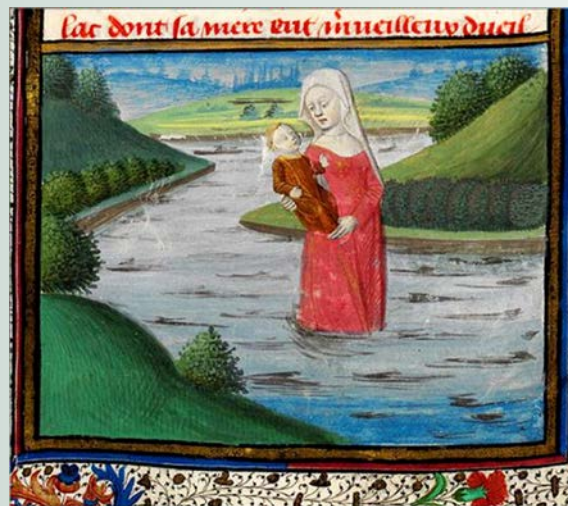 lac dont sa mere eut m̃ueilleux dueil